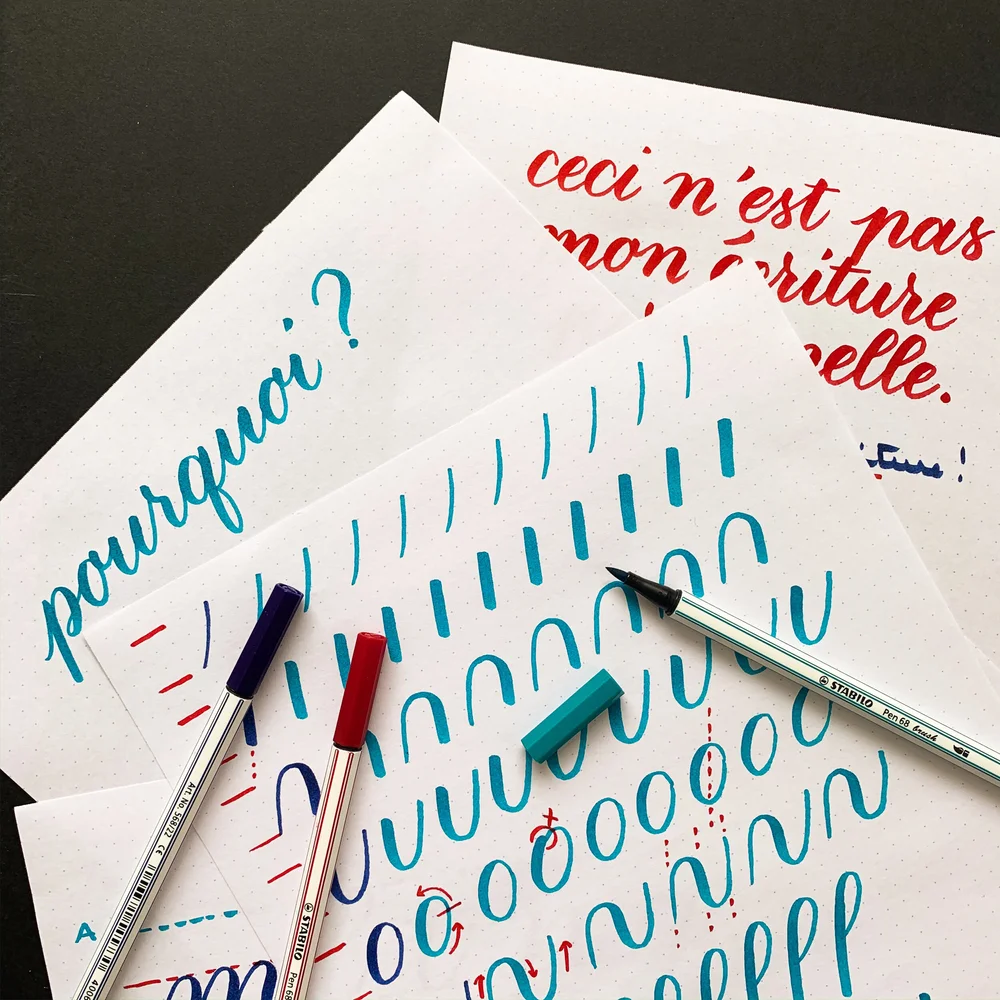 ceci n'est pas
mon écriture
pourquoi ?
STABILO Pen 68 brush
Art. No. 568/22 CE
STABILO Pen 68
A
m